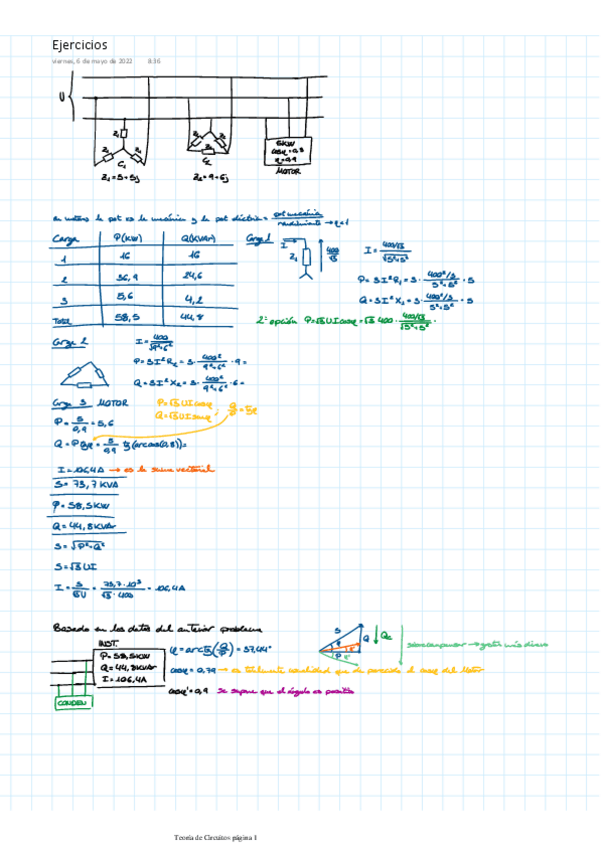 Ejercicios
viernes, 6 de mayo de 2022 8:36
U
Z₁ Z₁ Z₁ C₁
Z₁=5+5j
Z₂ Z₂ Z₂
Z₂=9+6j
5KW
cosφ=0,8
η=0,9
MOTOR
Carga P(KW) Q(KVAr)
1 16 16
2 36,9 24,6
3 5,6 4,2
Total 58,5 44,8
Carga 1
I
Z₁
400/√3
I = (400/√3)/√(5²+5²)
P = 3I²R₁ = 3·(400²/3)/(5²+5²)·5
Q = 3I²X₁ = 3·(400²/3)/(5²+5²)·5
2ª opción P=√3UIcosφ=√3 400·(400/√3)/√(5²+5²)·
Carga 2
I = 400/√(9²+6²)
P = 3I²R₂ = 3·400²/(9²+6²)·9=
Q = 3I²X₂ = 3·400²/(9²+6²)·6=
Carga 3 MOTOR
P=√3UIcosφ
Q=√3UIsenφ; Q/P=tgφ
P = 5/0,9 = 5,6
Q = P tgφ = 5/0,9 tg(arccos(0,8))=
I = 106,4A → es la suma vectorial
S = 73,7 KVA
P = 58,5KW
Q = 44,8KVAr
S = √(P²+Q²)
S = √3UI
I = S/√3U = 73,7·10³/√3·400 = 106,4A
Basado en los datos del anterior problema
INST.
P = 58,5KW
Q = 44,8KVAr
I = 106,4A
CONDEN
φ = arctg(Q/P) = 37,44°
cosφ = 0,79 → es totalmente casualidad que de parecido el cosφ del Motor
cosφ' = 0,9 Se supone que el ángulo es positivo
S Q Qc
P
sobrecompensar → gastar más dinero
Teoría de Circuitos página 1